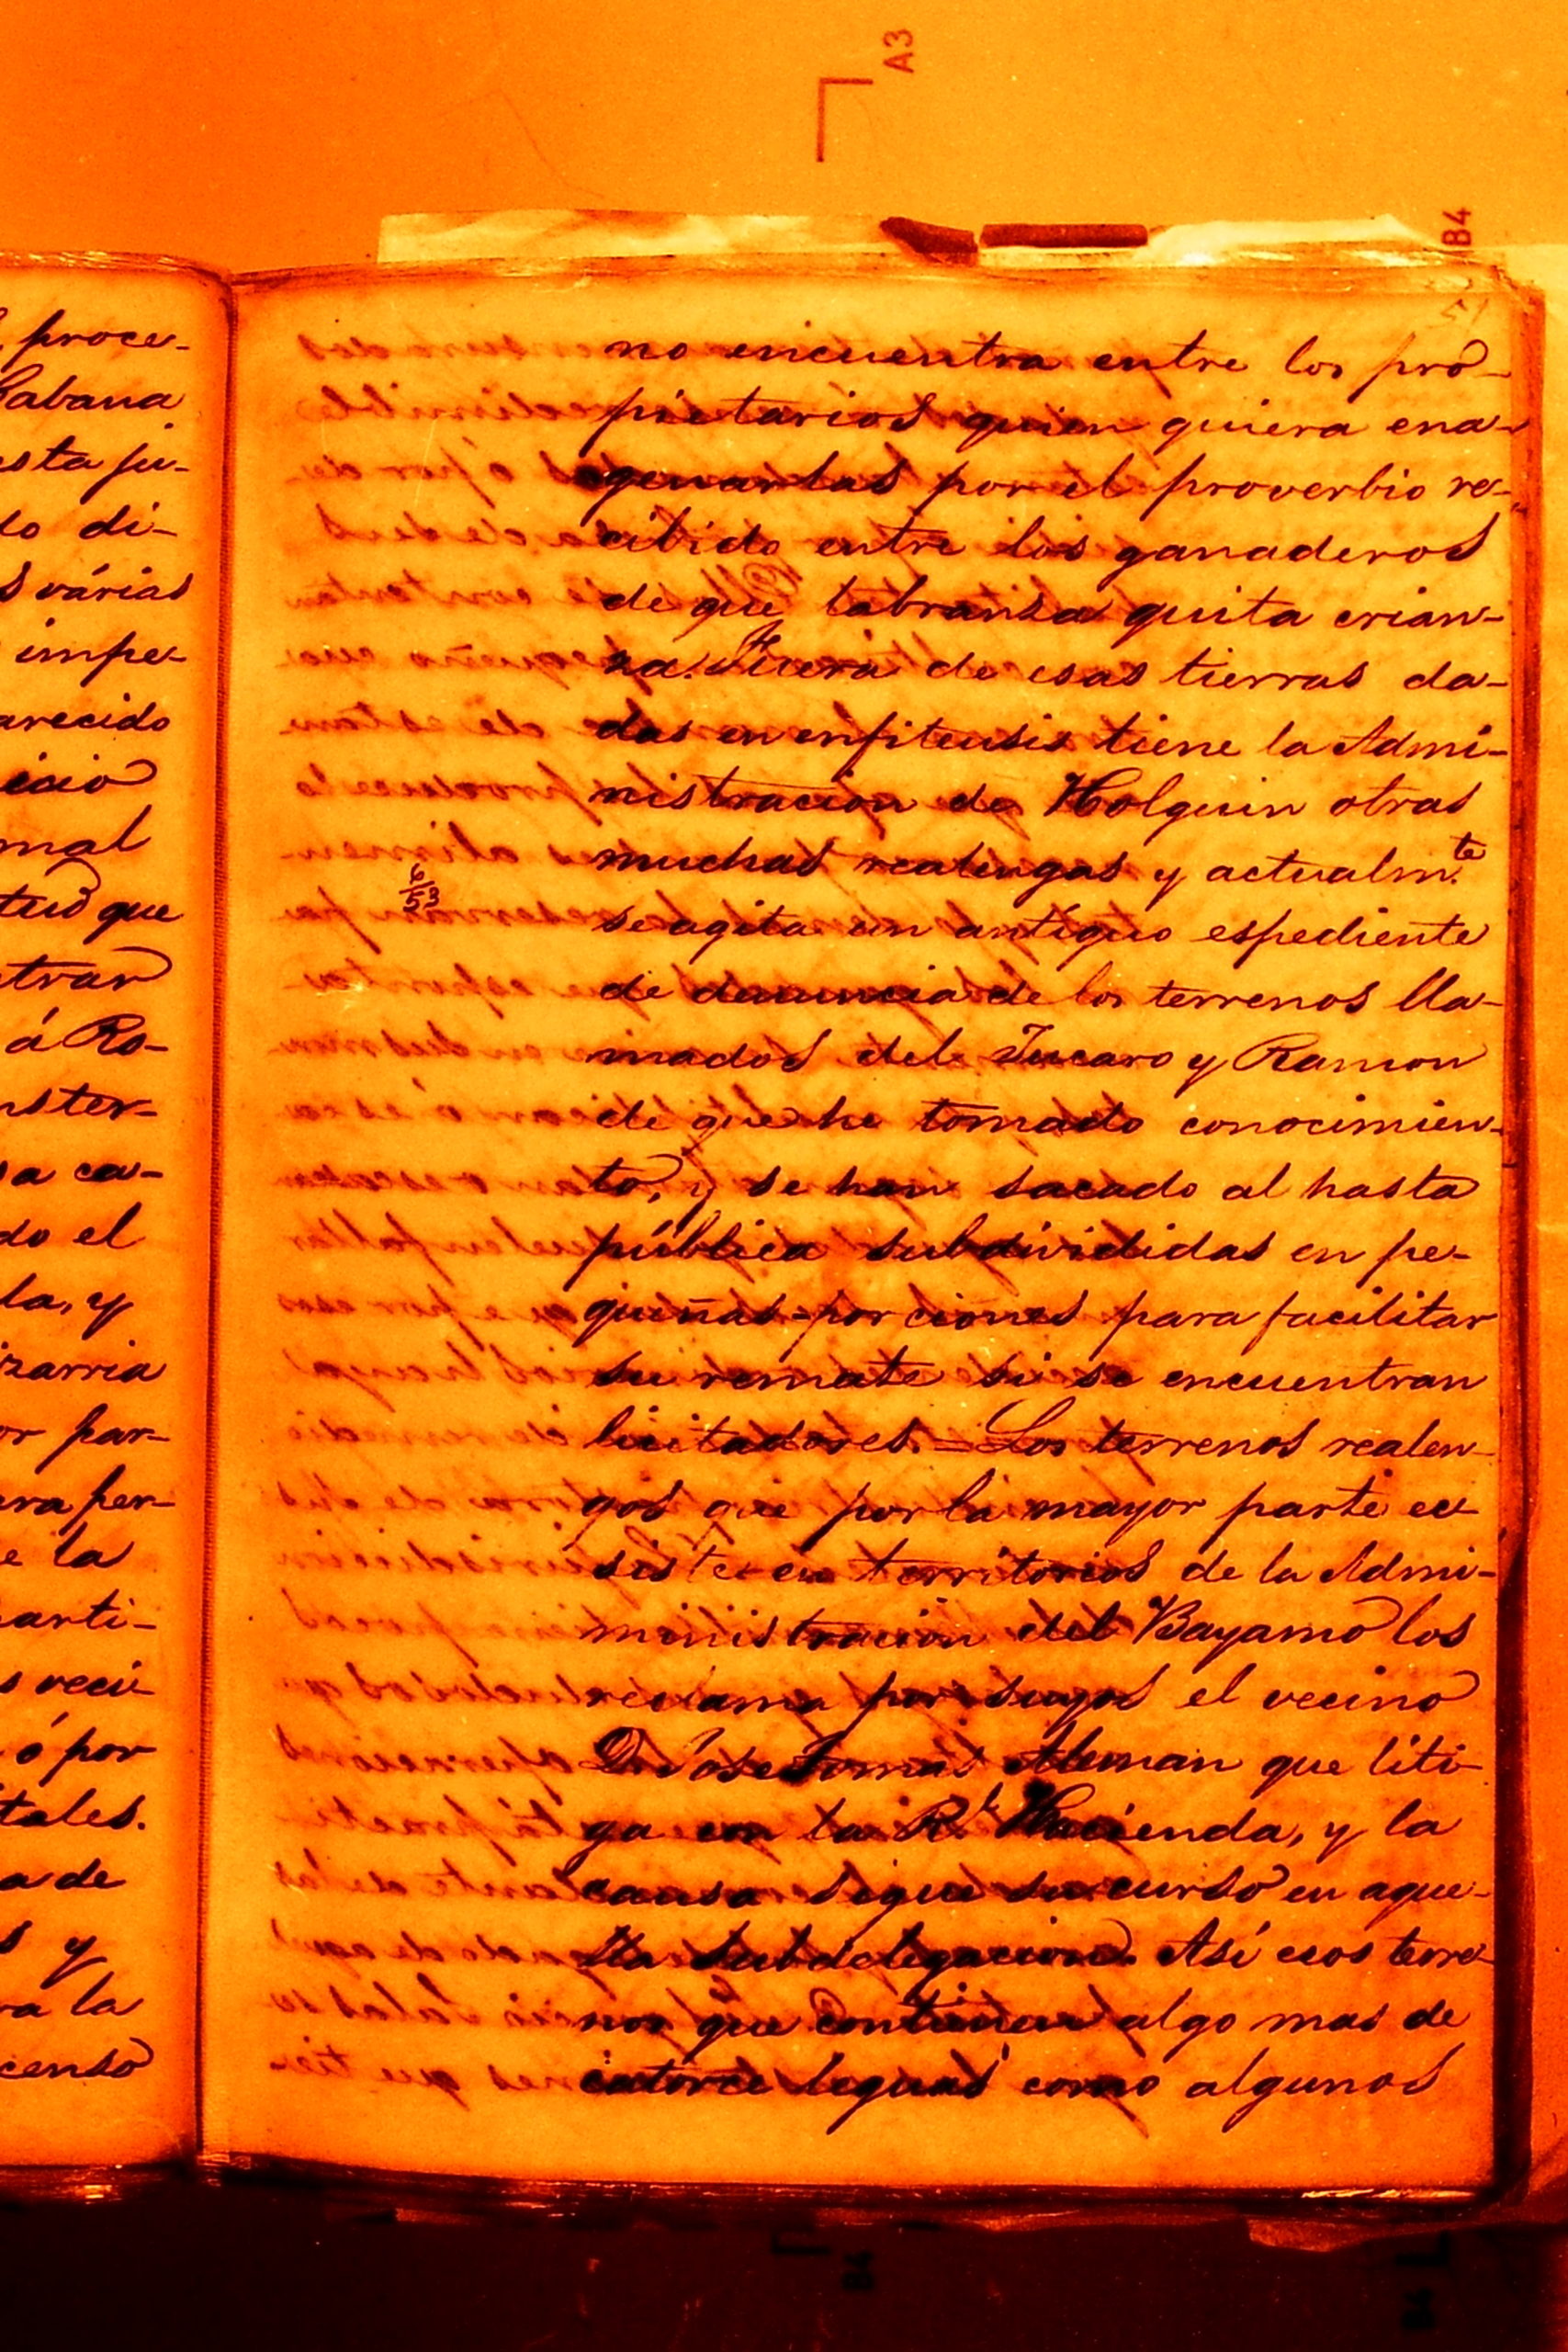 A3
B4
51
proce-
Cabana
esta ju-
do di-
s várias
impe-
arecido
icio
mal
tud que
trar
á Ro-
nster-
sa ca-
do el
la, y
izarria
or par-
era per-
e la
parti-
s veci-
ó por
tales.
a de
s y
ra la
censo
no encuentra entre los pro-
pietarios quien quiera ena-
genarlas por el proverbio re-
cibido entre los ganaderos
de que labranza quita crian-
za. Fuera de esas tierras da-
das en enfiteusis tiene la Admi-
nistracion de Holguin otras
muchas realengas y actualm.te
6/53
se agita un antíguo espediente
de denuncia de los terrenos lla-
mados del Jucaro y Ramon
de que he tomado conocimien-
to, y se han sacado al hasta
pública subdivididas en pe-
queñas porciones para facilitar
su remate si se encuentran
licitadores. = Los terrenos realen-
gos que por la mayor parte ec-
siste en territorios de la Admi-
ministracion del Bayamo los
reclama por suyos el vecino
Dn José Tomás Aleman que liti-
ga con la Rl. Hacienda, y la
causa sigue su curso en aque-
lla Subdelegacion. Así esos terre-
nos que contienen algo mas de
catorce leguas como algunos
B4
B4